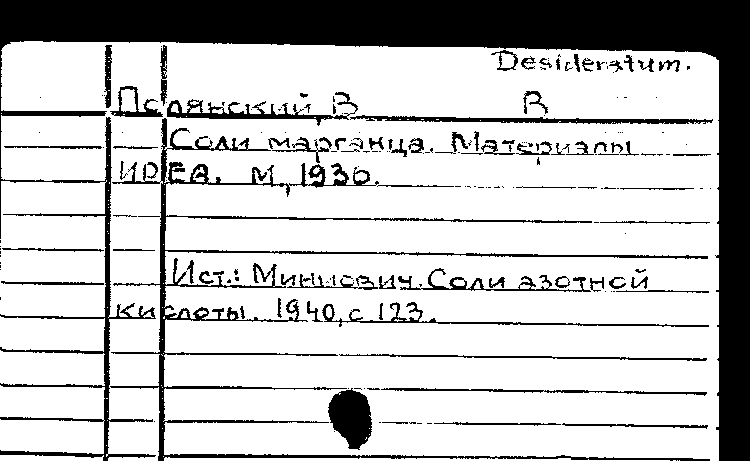 Desideratum.
Полянский, В В
Соли марганца. Материалы
ИРЕА. М., 1936.
Ист.: Миниович. Соли азотной
кислоты. 1940, с 123.